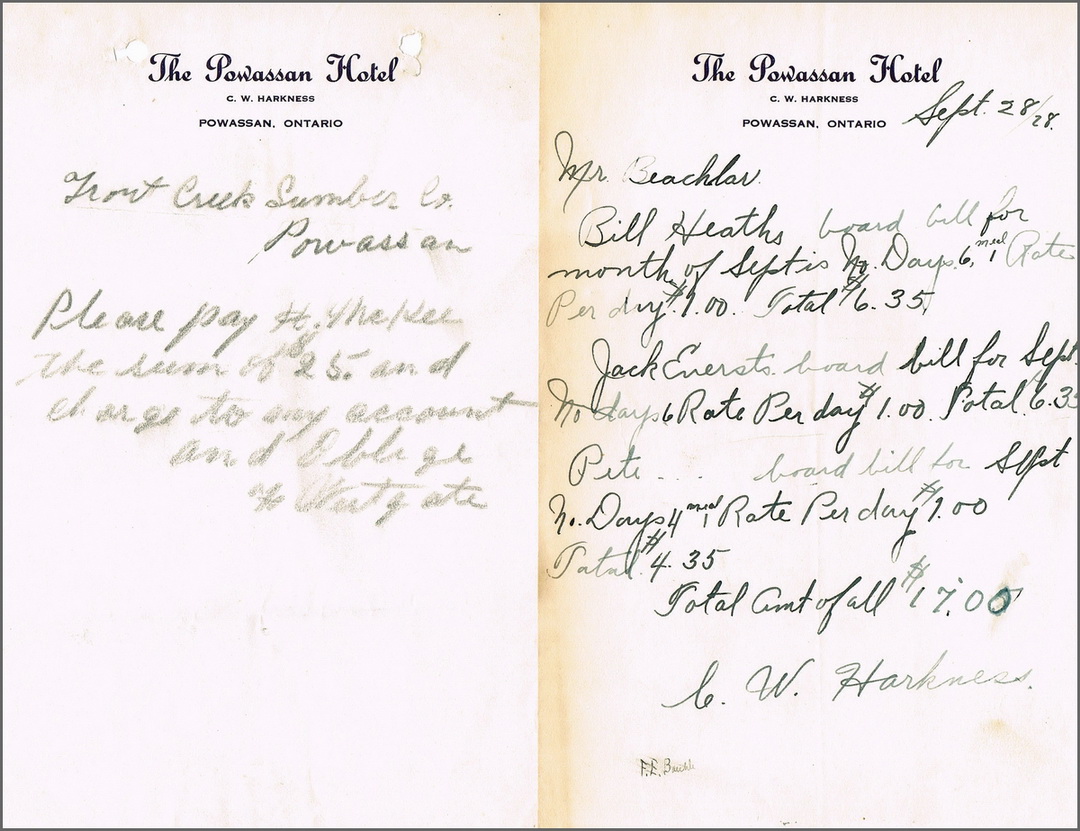 The Powassan Hotel
C. W. HARKNESS
POWASSAN, ONTARIO
Trout Creek Lumber Co.
Powassan
Please pay H. McKee
the sum of $25. and
charge to my account
and Oblige
H Westgate
The Powassan Hotel
C. W. HARKNESS
POWASSAN, ONTARIO
Sept. 28/28.
Mr. Beachlar.
Bill Heaths board bill for
month of Sept is No. Days. 6, 1 meal Rate
Per day $1.00. Total $6.35.
Jack Enersts. board bill for Sept.
No days 6 Rate Per day $1.00. Total. 6.35
Pete ... board bill for Sept
No. Days 4 meal 1 Rate Per day $1.00
Total $4.35
Total Amt of all $17.00
C. W. Harkness.
F.E.